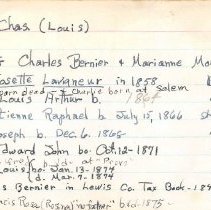 Chas. (Louis)
Charles Bernier & Marianne Mo
Rosette Lavigneur in 1858
born dead & Charlie born, at Salem
Louis Arthur b. 1864
Etienne Raphael b July 15, 1866
Joseph b. Dec. 6. 1868
Edward John bo Oct. 12-1871
b. d. at "Pic
Louis bo. Jan. 13-1874
d. Mar. 7-1874
s Bernier in Lewis Co. Tax Book-18
Rosa (Rosna) bd-1875-